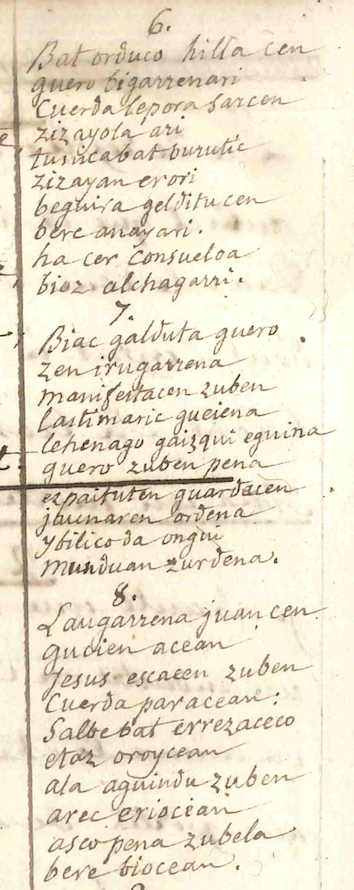 6.
Bat orduco hilla cen
guero bigarrenari
Cuerda lepora sarcen
zizayola ari
tusuca bat burutic
zizayan erori
beguira gelditu cen
bere anayari.
ha cer Consueloa
bioz alchagarri.
7.
Biac galduta guero
zen irugarrena
manifestacen zuben
lastimaric gueiena
lehenago gaizqui eguina
guero zuben pena
ezpaituten guardacen
jaunaren ordena
ybilico da ongui
munduan zurdena.
8.
Laugarrena juan cen
gucien acean
Jesus escacen zuben
Cuerda paracean:
Salbe bat errezaceco
etaz oroycean
ala aguindu zuben
arec eriocean
asco pena zubela
bere biocean.